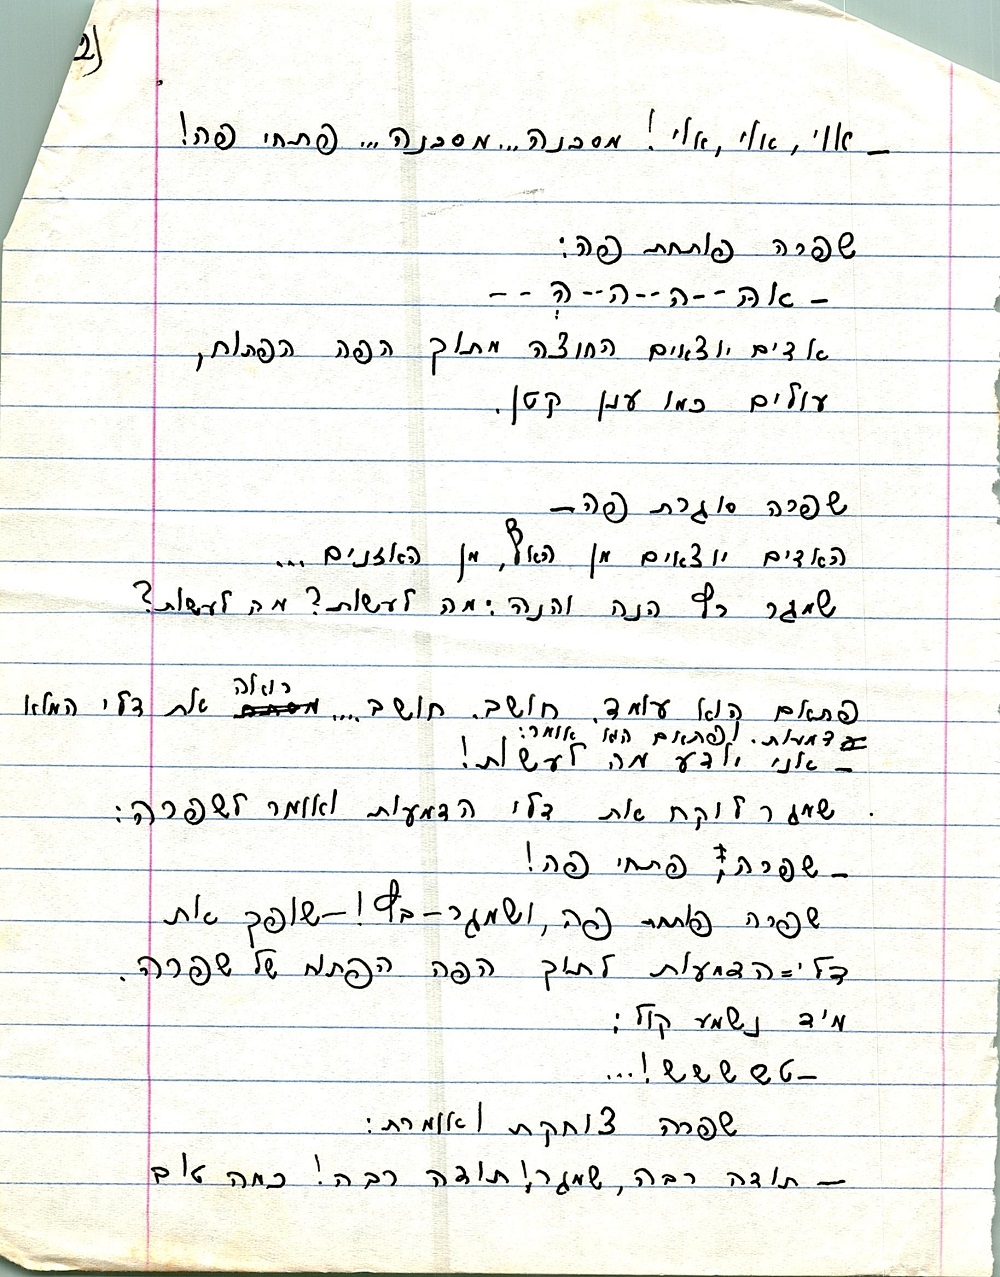 (2
– אוי, אוי, אוי! מסכנה... מסכנה... פתחי פה!
שפרה פותחת פה:
– אה--ה--ה--ה--
אדים יוצאים החוצה מתוך הפה הפתוח,
עולים כמו ענן קטן.
שפרה סוגרת פה–
האדים יוצאים מן האף, מן האזנים...
שמגר רץ הנה והנה: מה לעשות? מה לעשות?
רואה
פתאם הוא עומד. חושב. חושב.... את דלי המלא
דמעות. ופתאם הוא אומר:
– אני יודע מה לעשות!
שמגר לוקח את דלי הדמעות ואומר לשפרה:
– שפרה, פתחי פה!
שפרה פותחת פה, ושמגר–בף!–שופך את
דלי=הדמעות לתוך הפה הפתוח של שפרה.
מיד נשמע קול:
–טששששש!...
שפרה צוחקת ואומרת:
– תודה רבה, שמגר! תודה רבה! כמה טוב